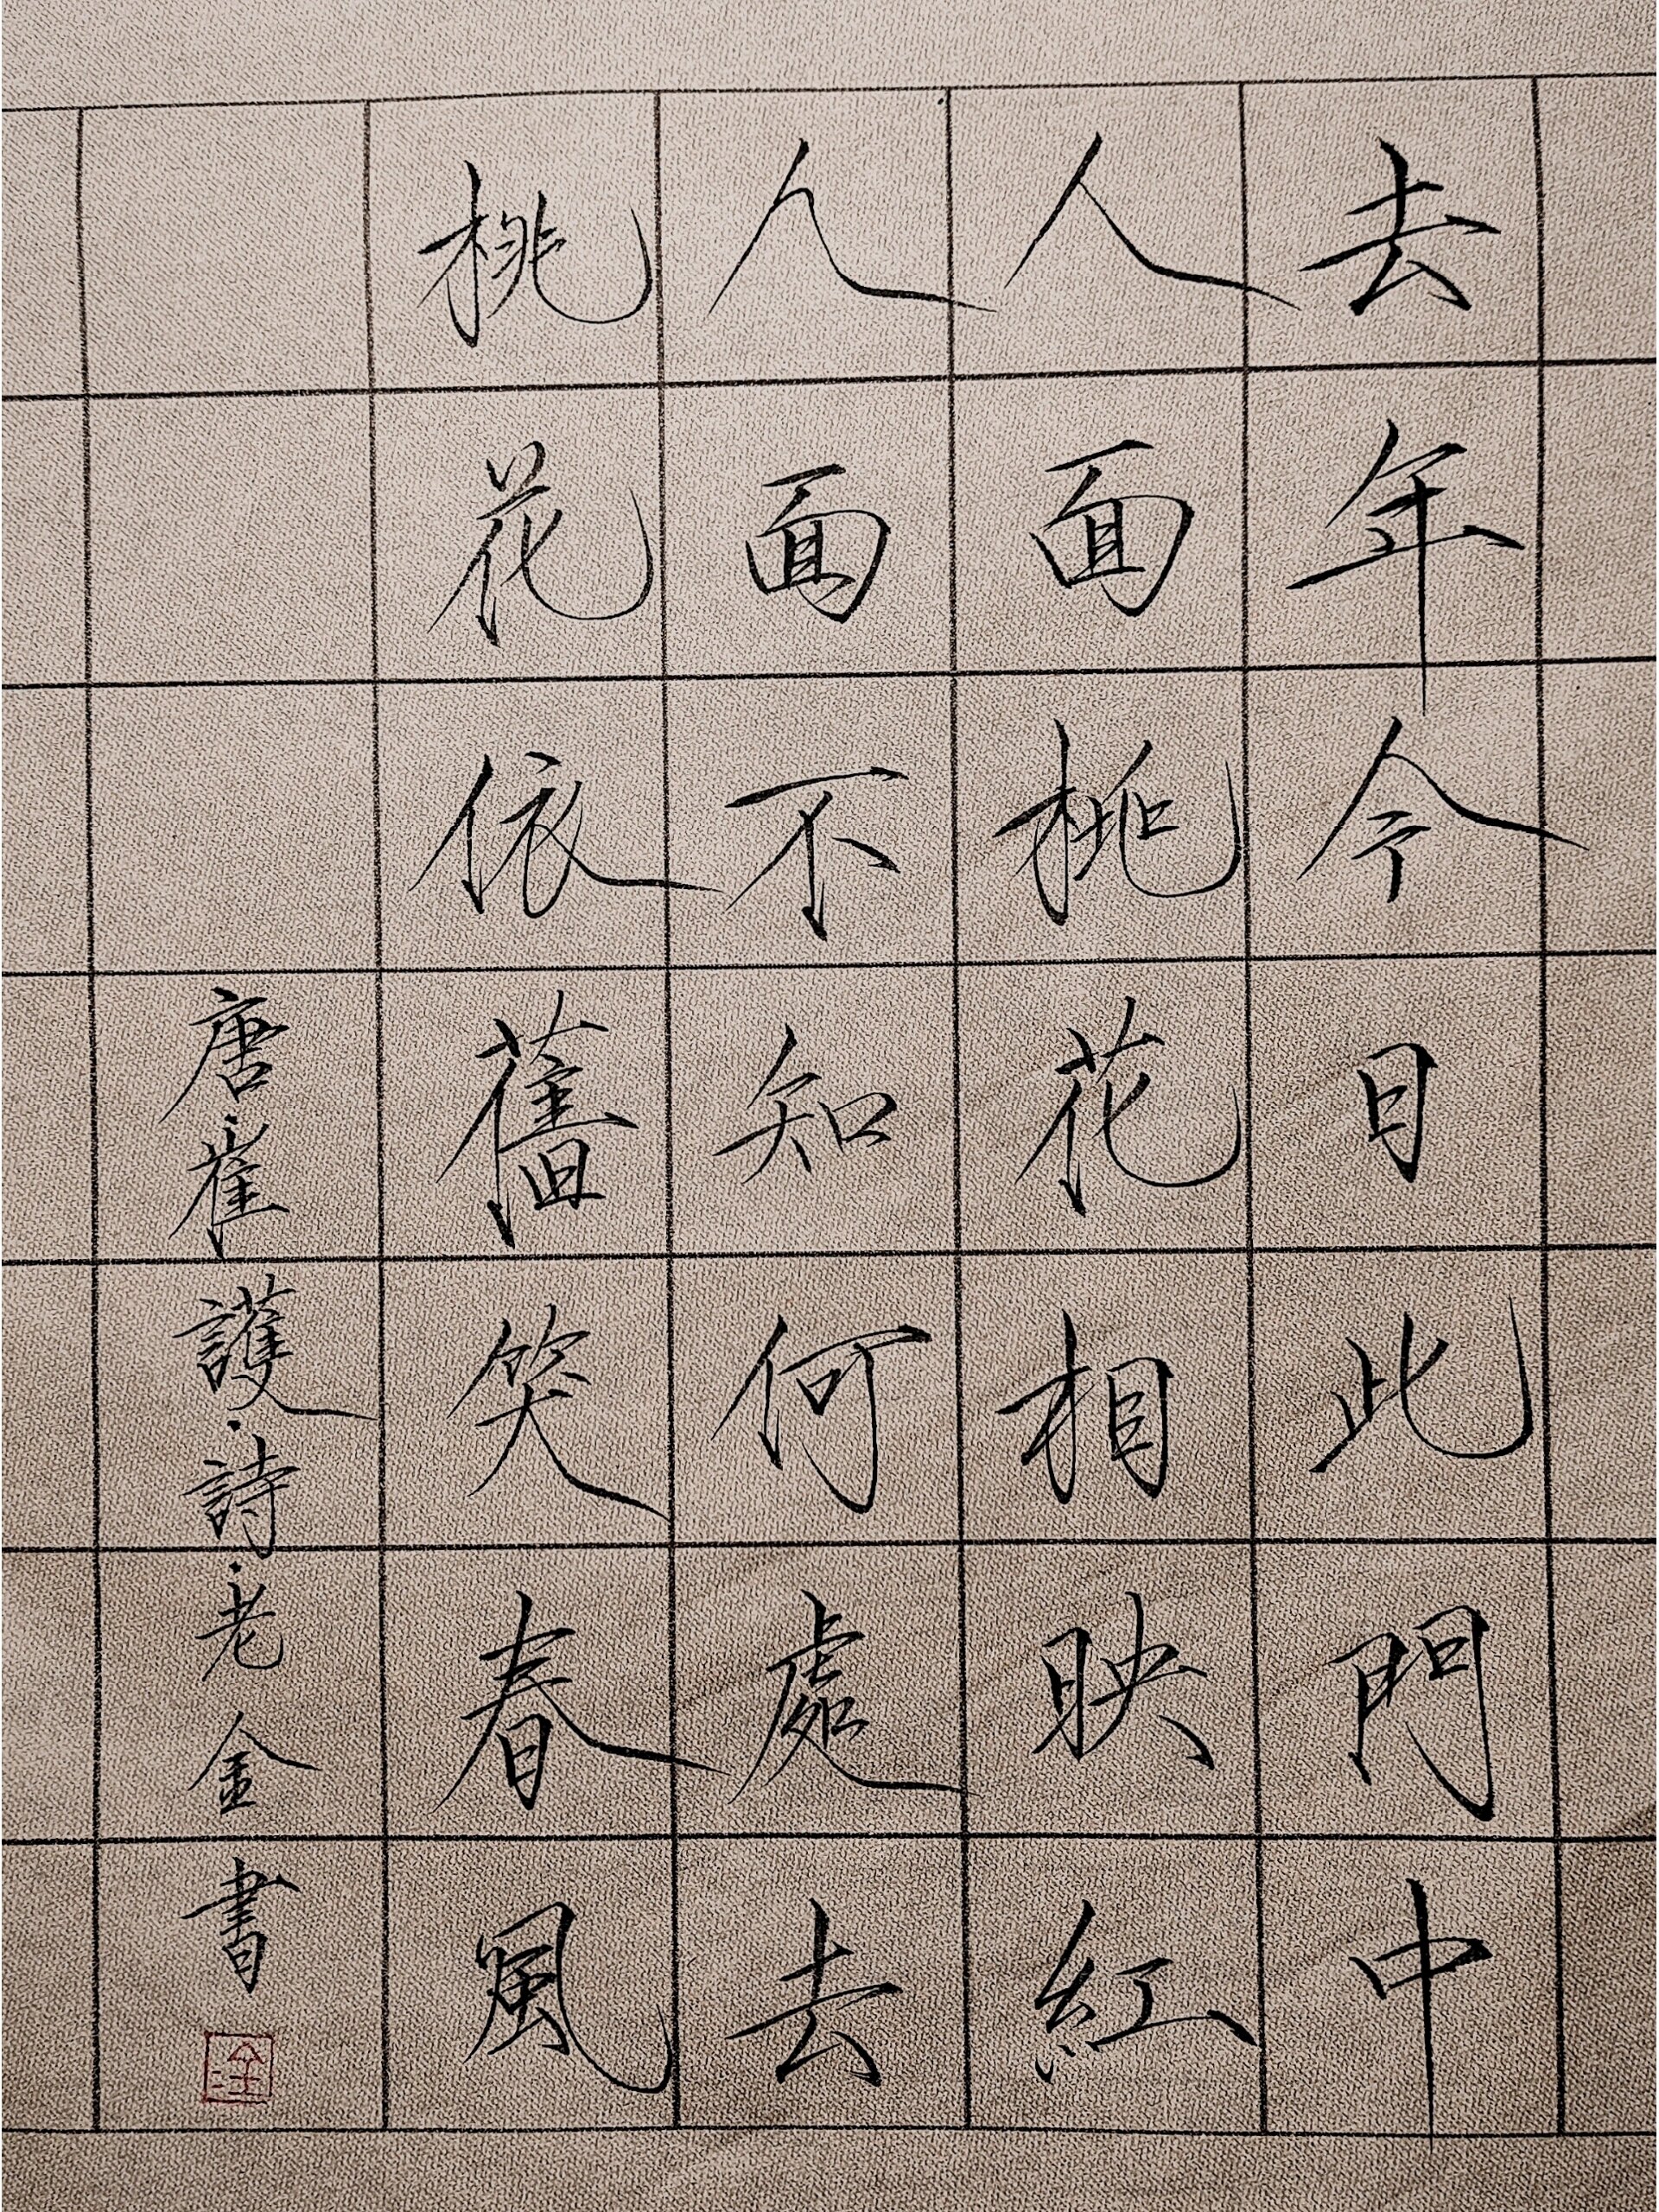 去年今日此門中
人面桃花相映紅
人面不知何處去
桃花依舊笑春風
唐·崔護·詩·老金書
金